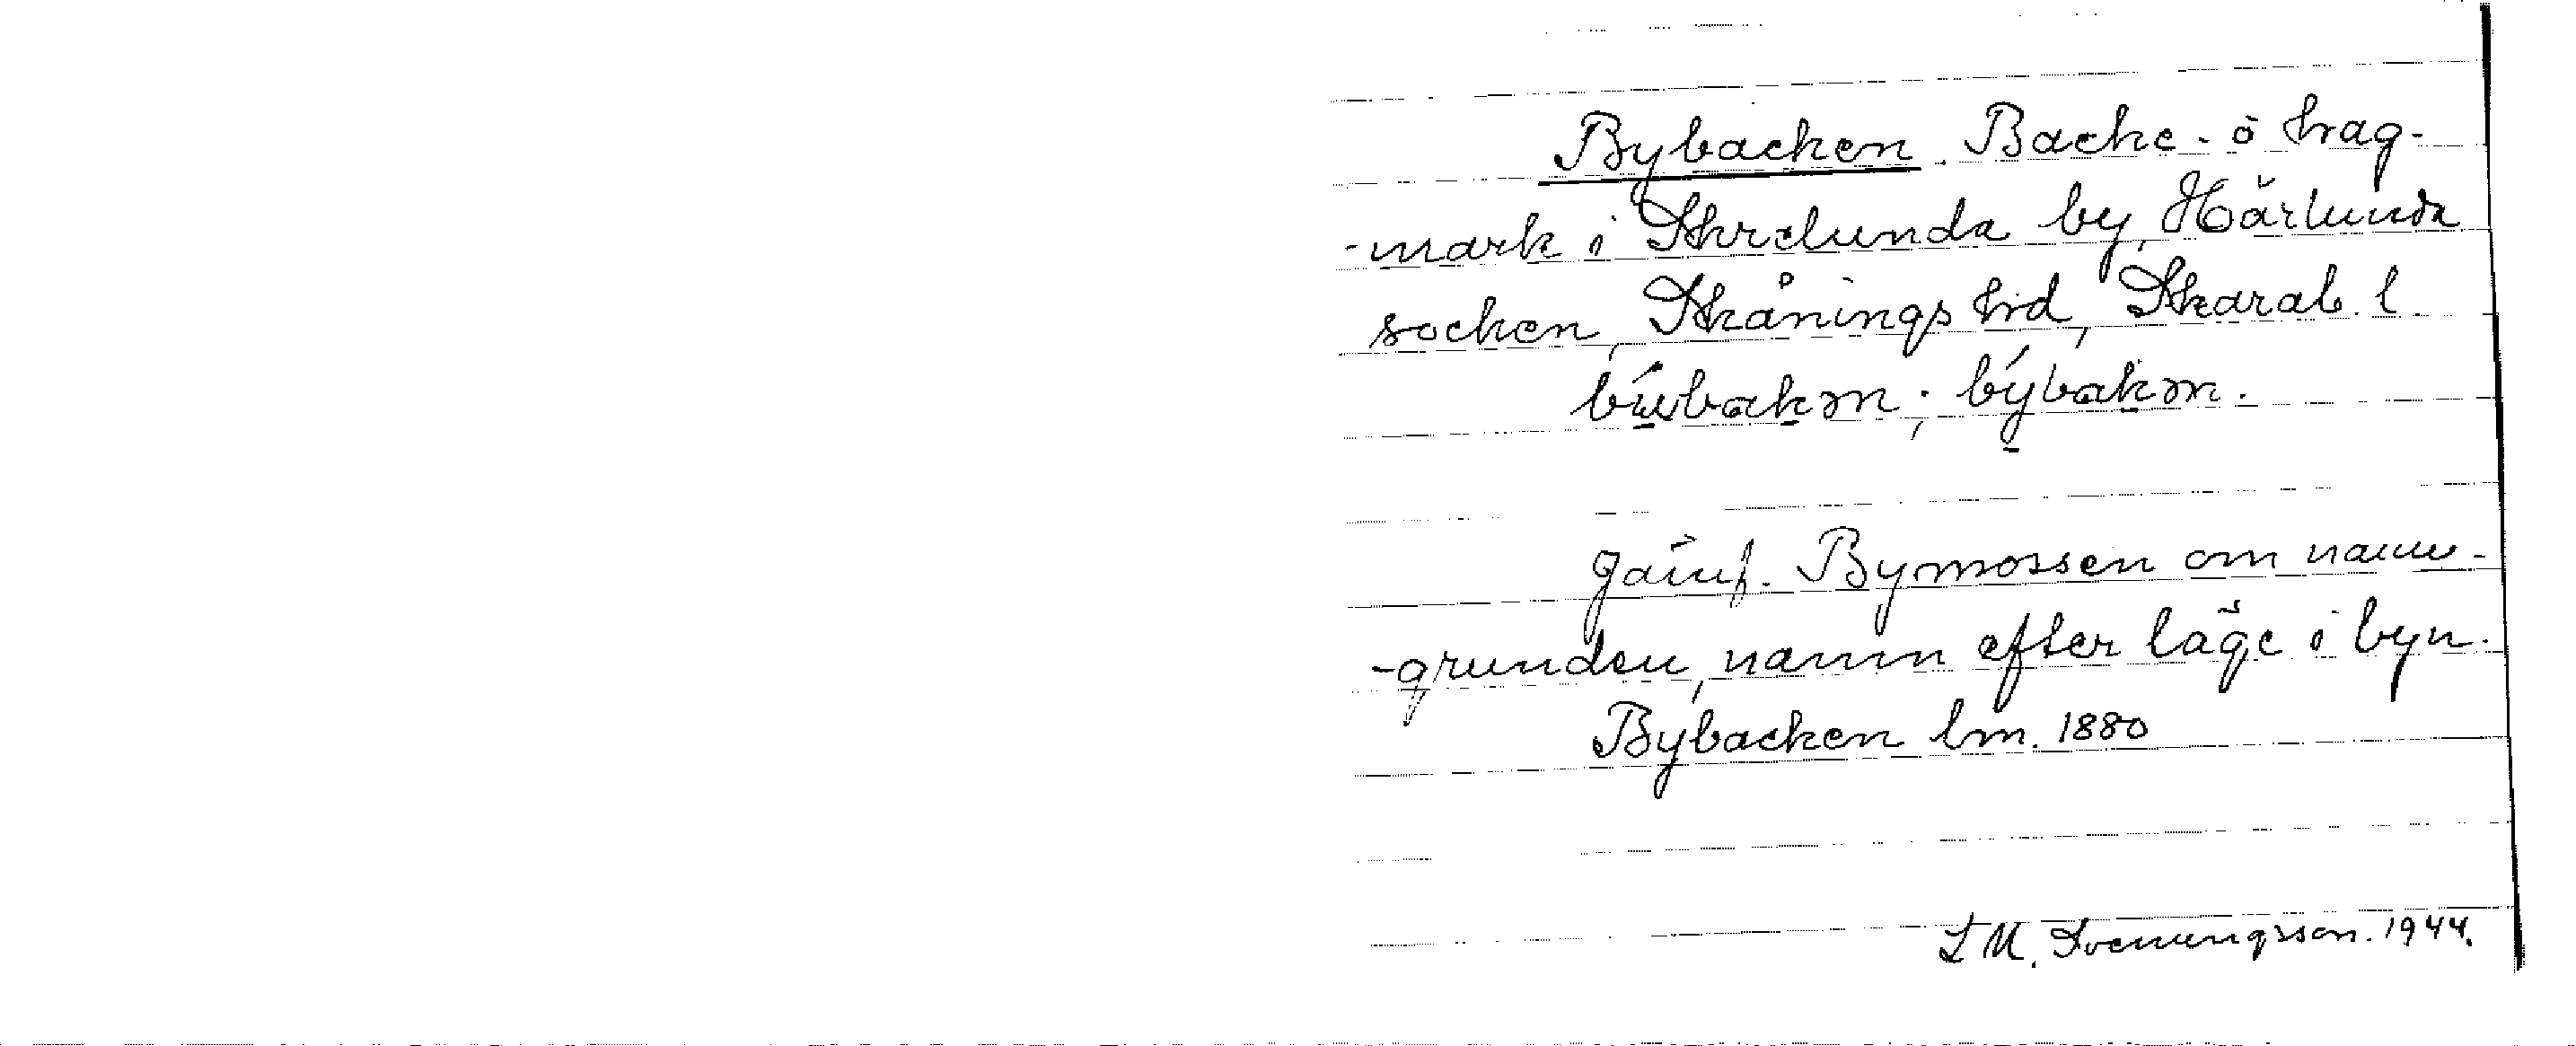 Bybacken. Backe- o hag-
-mark i Skrelunda by, Härlunda
socken, Skånings hd, Skarab. l.
býbakən; býbakən.
Jämf. Bymossen om namn-
-grunden, namn efter läge i byn.
Bybacken lm. 1880
L M. Svenungsson. 1944.